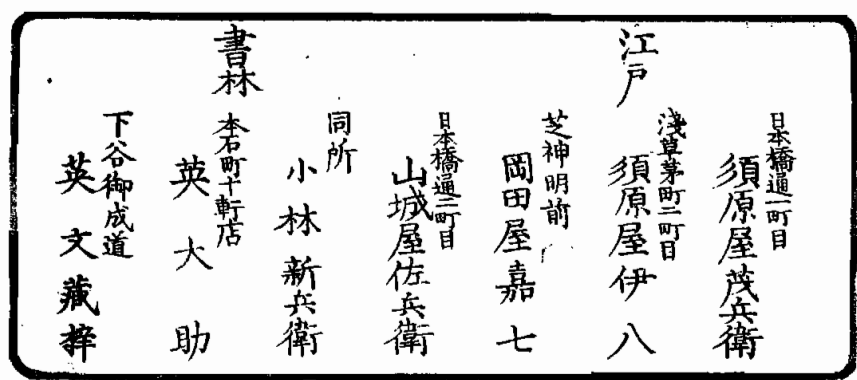 江戸
書林
日本橋通一町目
須原屋茂兵衛
淺草茅町二町目
須原屋伊八
芝神明前
岡田屋嘉七
日本橋通二町目
山城屋佐兵衛
同所
小林新兵衛
本石町十軒店
英大助
下谷御成道
英文藏梓